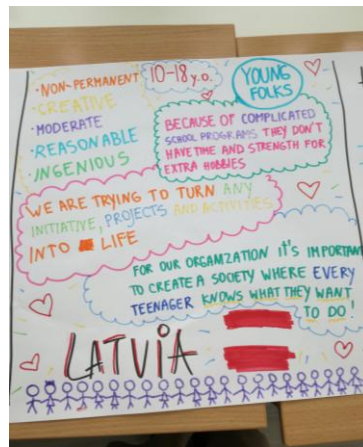 ·NON-PERMANENT
·CREATIVE
·MODERATE
·REASONABLE
·INGENIOUS
10-18 y.o.
YOUNG
FOLKS
BECAUSE OF COMPLICATED
SCHOOL PROGRAMS THEY DON'T
HAVE TIME AND STRENGTH FOR
EXTRA HOBBIES
WE ARE TRYING TO TURN ANY
INITIATIVE, PROJECTS AND ACTIVITIES
INTO LIFE
FOR OUR ORGANIZATION IT'S IMPORTANT
TO CREATE A SOCIETY WHERE EVERY
TEENAGER KNOWS WHAT THEY WANT
TO DO!
LATVIA